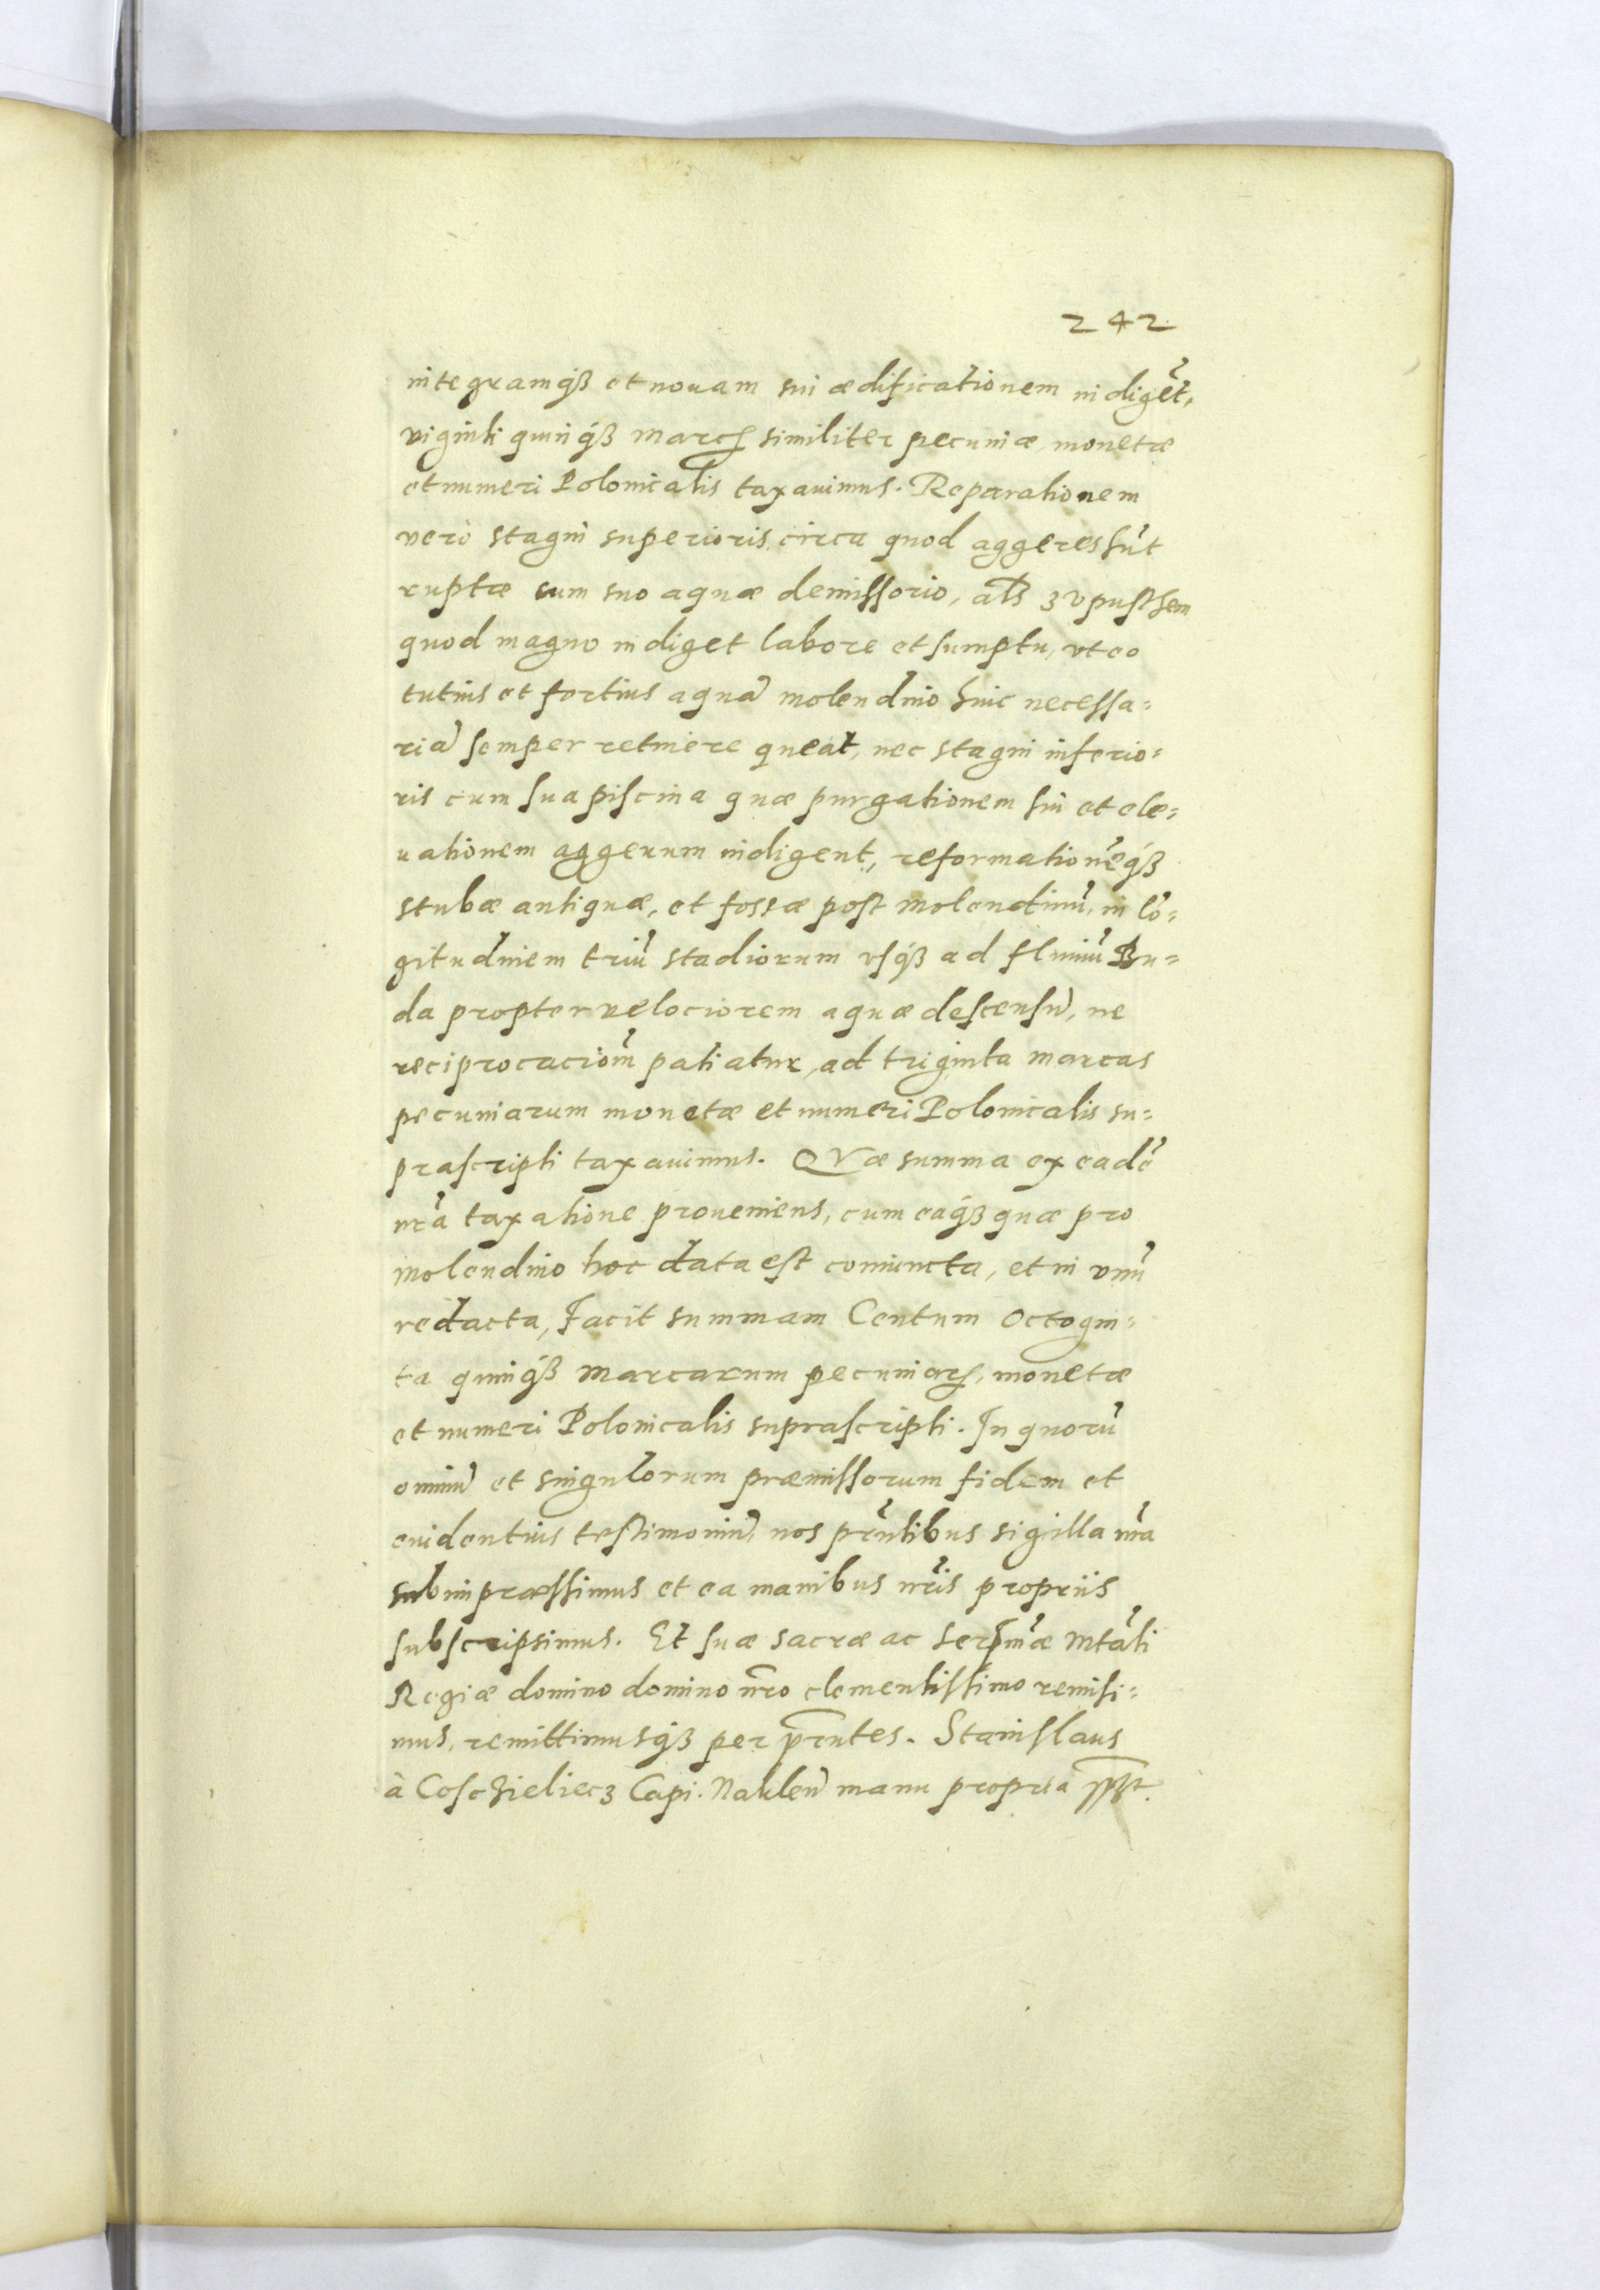 242
integramq́ꝫ et nouam sui ædificationem indigēt,
viginti quinq́ꝫ marcꝝ similiter pecuniæ, monetæ
et numeri Polonicalis taxauimus. Reparationem
vero stagni superioris, circa quod aggeres sūt
ruptæ cum suo aquæ demissorio, als z vpusthem
quod magno indiget labore et sumptu, vt eo
tutius et fortius aquā molendino huic necessa=
riā semper retinere queat, nec stagni inferio=
ris cum sua piscina quæ purgationem sui et ele=
uationem aggerum indigent, reformationēq́ꝫ
stubæ antiquæ, et fossæ post molendinū, in lō=
gitudinem triū stadiorum vsq́ꝫ ad fluuiū Bu=
da propter velociorem aquæ descensū, ne
reciprocacionē patiatur, ad triginta marcas
pecuniarum monetæ et numeri Polonicalis su=
prascripti taxauimus. QVæ summa ex eadē
nrā taxatione proueniens, cum eaq́ꝫ quæ pro
molendino hoc data est coniuncta, et in vnū
redacta, facit summam Centum Octogin=
ta quinq́ꝫ marcarum pecuniaꝝ, monetæ
et numeri Polonicalis suprascripti. In quorū
omniū et singulorum præmissorum fidem et
euidentius testimoniū, nos prn̄tibus sigilla nrā
subimpræssimus et ea manibus nrīs propriis
subscripsimus. Et suæ sacræ ac Serꝫmæ Mtāti
Regiæ domino domino nrō clementissimo remisi=
mus, remittimusq́ꝫ per prn̄tes. Stanislaus
à Coschieliecz Capi. Naklen̄ manu propria sspt.